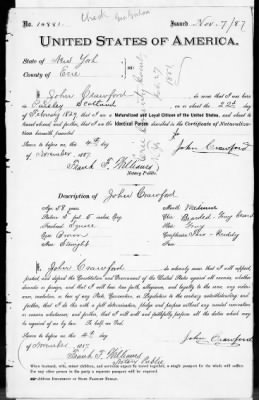 Check
No. 10881. Issued Nov. 7/87
UNITED STATES OF AMERICA.
State of New York
County of Erie
I, John Crawford, do swear that I was born
at Paisley Scotland, on or about the 22d
of February 1829; that I am a Naturalized and Loyal Citizen of the United States, and about to
travel abroad; and further, that I am the Identical Person described in the Certificate of Naturaliza-
tion herewith presented.
Sworn to before me, this 4th day
of November 1887. John Crawford
Frank F. Williams
Notary Public.
Description of John Crawford
Age 58 years
Mouth Medium
Stature 5 feet 5 inches Eng.
Chin
Forehead Square
Hair Gray
Eyes Brown
Complexion
Nose Straight
Face
I, John Crawford, do solemnly swear that I will support,
protect, and defend the Constitution and Government of the United States against all enemies, whether
domestic or foreign, and that I will bear true faith, allegiance, and loyalty to the same, any ordi-
nance, resolution, or law of any State, Convention, or Legislature to the contrary notwithstanding; and
further, that I do this with a full determination, pledge, and purpose without any mental reservation
or evasion whatsoever, and further, that I will well and faithfully perform all the duties which may
be required of me by law. So help me God.
Sworn to before me, this 4th day
of November 1887. John Crawford
Frank F. Williams
Notary Public